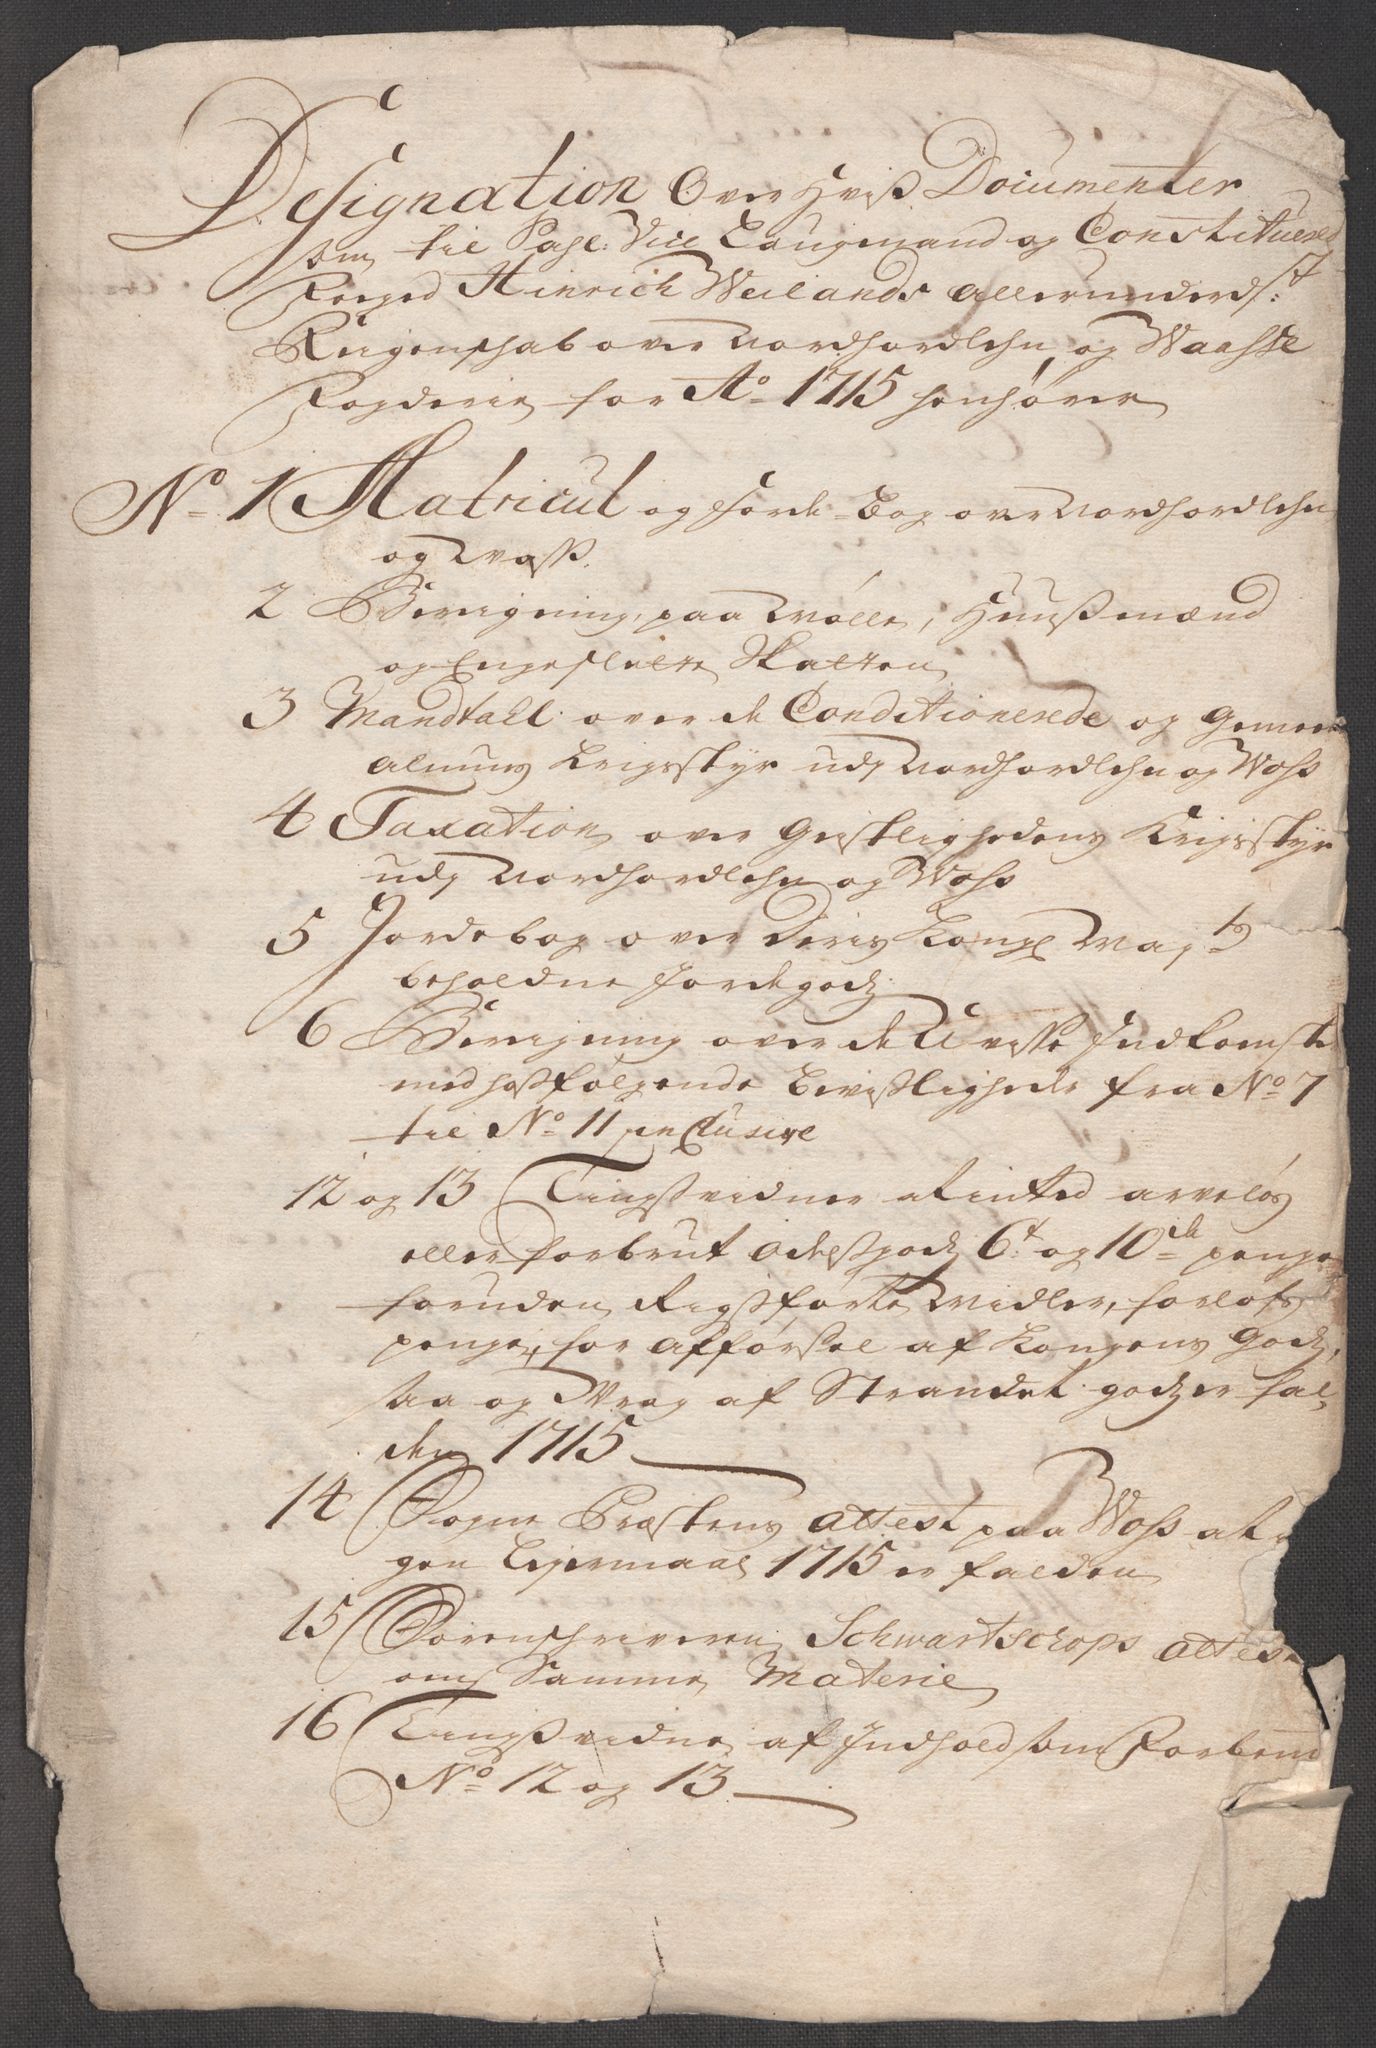 Designation Over Hviß Documenter
som til Sahl: Vice Laugmand og Constituered
Foeged Hinrich Weilands allerunderdst:
Reigenschab over Nordhordlehn og Waaßke
Fogderie for Ao 1715 henhører
No 1 Matricul og Jorde-bog over Nordhordlehn
og Woss.
2 Beregning paa Mølle, Huußmænd
og Engeslette Skatten
3 Mandtall over de Conditionerede og Gemeene
almues Krigsstyr udj Nordhordlehn og Woss
4 Taxation over Geistlighedens Krigsstyr
udj Nordhordlehn og Woss
5 Jordebog over Deris Kongl Mayts
beholdne Jordegodz
6 Beregning over de Uvisse Indkomster
med hosfølgende bevisligheder fra No 7
til No 11 inclusive
12 og 13 Tingsvidner at inted arveløs
eller forbrut Odelsgodz 6t og 10de penge
foruden Rigsførte Midler, forlofs
penge, for afførsel af Kongens Godz,
saa og Vrag af Strandet godz er fal-
den 1715
14 Sogne Præstens attest paa Woss at
gen Leyermaal 1715 er falden
15 Sorenschriveren Schwartscops attest
om Samme Materie
16 Tingsvidne af Indhold som Forbem
No 12 og 13